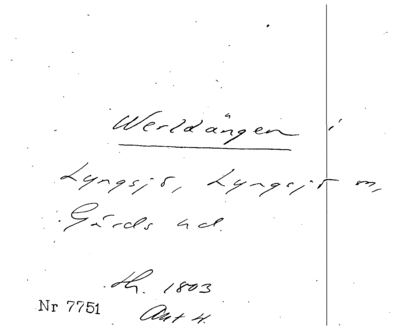 Werldängen i
Lyngsjö, Lyngsjö m,
Gärds hd.
th. 1803
Akt 4.
Nr 7751